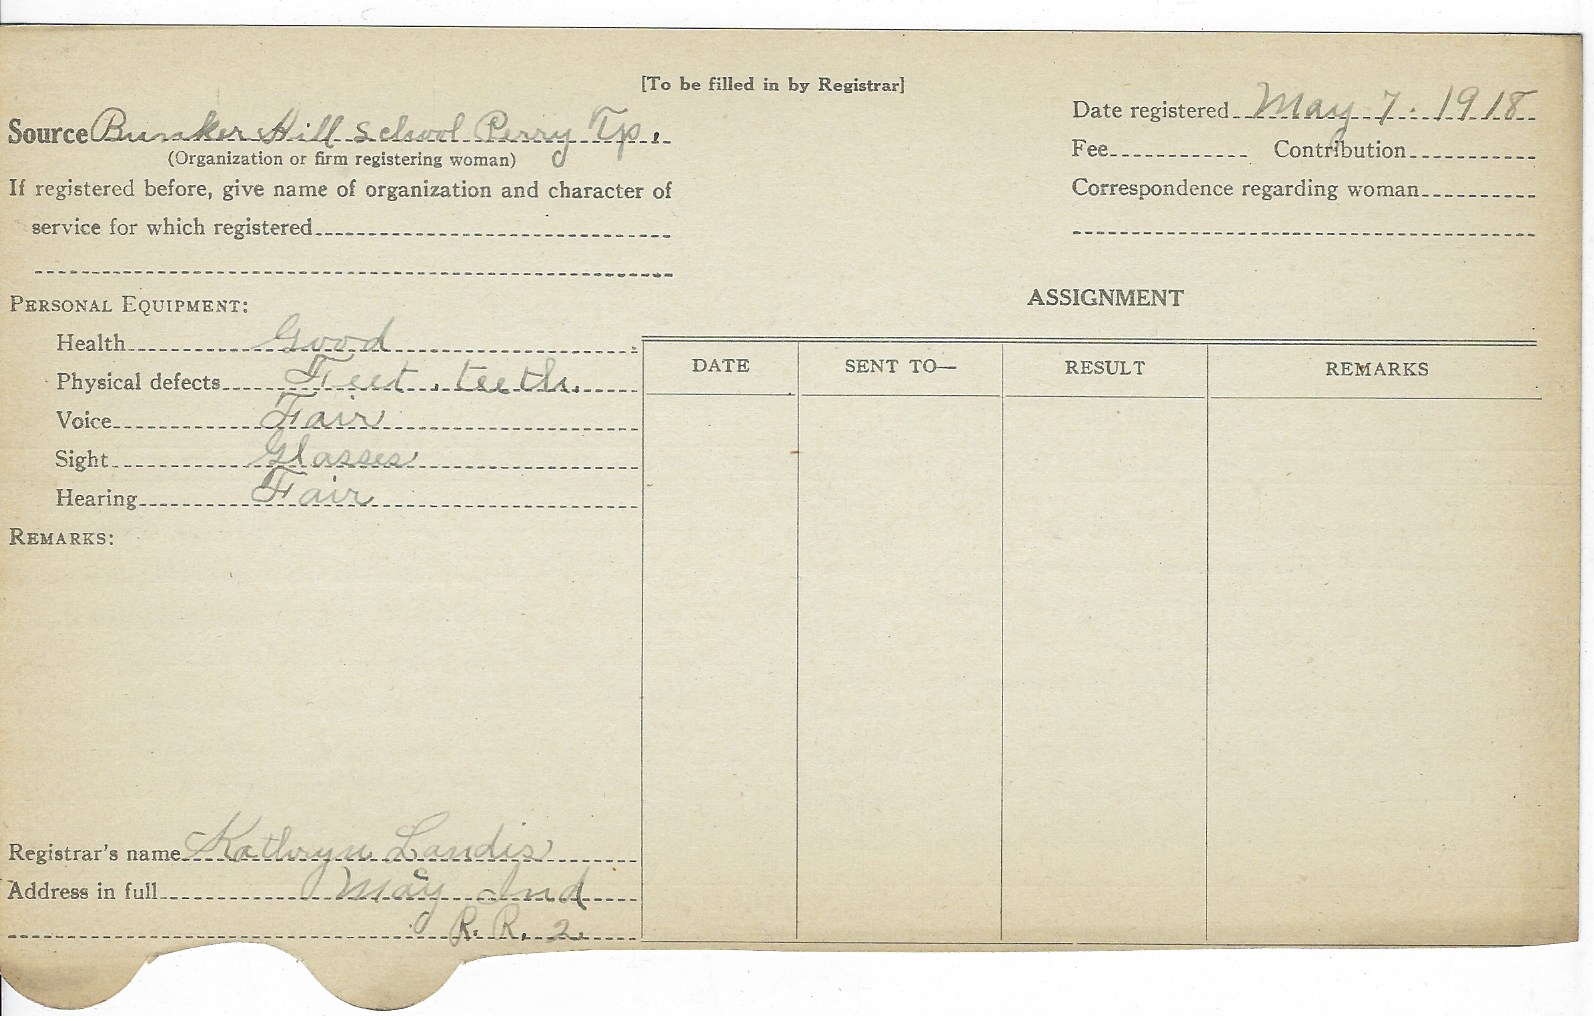 [To be filled in by Registrar]
Source Bunker Hill School Perry Tp.
(Organization or firm registering woman)
If registered before, give name of organization and character of
service for which registered
Date registered May 7. 1918
Fee Contribution
Correspondence regarding woman
PERSONAL EQUIPMENT:
Health Good
Physical defects Feet, teeth.
Voice Fair
Sight Glasses
Hearing Fair
REMARKS:
Registrar's name Kathryn Landis
Address in full May Ind
R. R. 2.
ASSIGNMENT
DATE SENT TO— RESULT REMARKS